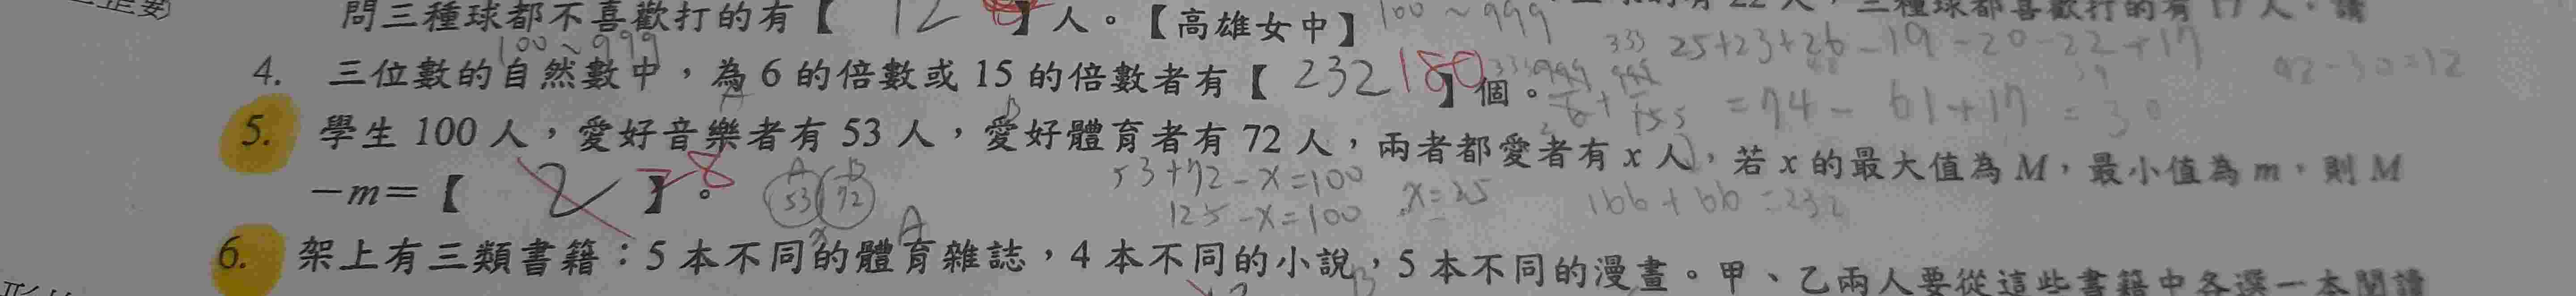 問三種球都不喜歡打的有【 12 】人。【高雄女中】 100~999 22人,三種球都喜歡打的有17人。請
100~999 333 25+23+26-19-20-22+17
4. 三位數的自然數中,為6的倍數或15的倍數者有【 232 180 】個。 =74-61+17=30 92-30=12
A B
5. 學生100人,愛好音樂者有53人,愛好體育者有72人,兩者都愛者有x人,若x的最大值為M,最小值為m,則M
-m=【 2 】。 28 A 53 B 72 53+72-x=100 x=25 166+66=232
125-x=100
A
6. 架上有三類書籍:5本不同的體育雜誌,4本不同的小說,5本不同的漫畫。甲、乙兩人要從這些書籍中各選一本閱讀